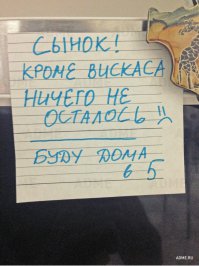 СЫНОК!
КРОМЕ ВИСКАСА
НИЧЕГО НЕ
ОСТАЛОСЬ!!
БУДУ ДОМА
в 5
ADME.RU